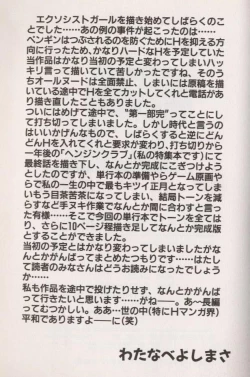 エクソシストガールを描き始めてしばらくのこ
とでした……あの例の事件が起こったのは……
ペンギンはつぶされるのを防ぐためにHを抑える方
向に行ったため、かなりハードなHを予定していた
当作品はかなり当初の予定と変わってしまいハッ
キリ言って描いていて苦しかったですね、そのう
ちオールヌードは全面禁止、しまいには原稿を描
いている途中でHを全てカットしてくれと電話があ
り描き直したこともありました。
ついにはめげて途中で、"第一部完"ってことにし
て打ち切ってしまいました。しかし時代と言うの
はいいかげんなもので、しばらくすると逆にどん
どんHを入れてくれと要求が変わり、打ち切りから
一年後の「ペンジンクラブ」(私の特集本です)にて
最終話を描き下し、なんとか完成にこぎつけよう
としたのですが、単行本の準備やらゲーム原画や
らで私の一生の中で最もキツイ正月となってしま
いもう目茶苦茶になってしまい、結局トーンを減
らすなど手ヌキ作家でなんとか間に合わすと言っ
た有様……そこで今回の単行本でトーンを全ては
り、さらに10ページ程描き足してなんとか完成版
とすることができました。
当初の予定とはかなり変わってしまいましたがな
んとかがんばってまとめたつもりです……はたし
て読者のみなさんはどうお読みになったでしょう
か……
私も作品を途中で投げたりせず、なんとかがんば
って行きたいと思います……がねー。あ〜長編
ってむつかしい。ああ…世の中(特にHマンガ界)
平和でありますよーに(笑)
わたなべよしまさ